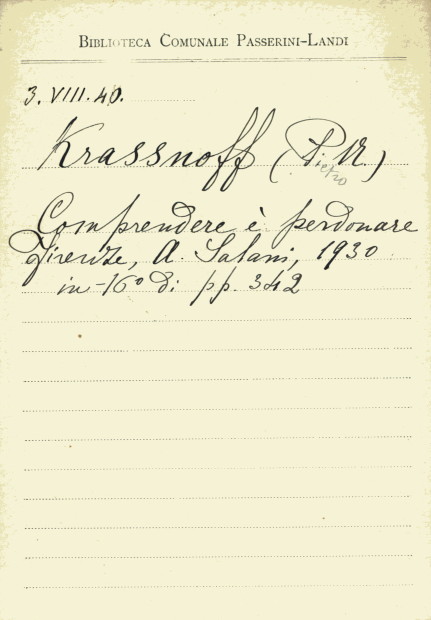 BIBLIOTECA COMUNALE PASSERINI-LANDI
3. VIII. 40.
Krassnoff (P. N.)
Pietro
Comprendere è perdonare
Firenze, A. Salani, 1930
in-16° di pp. 342